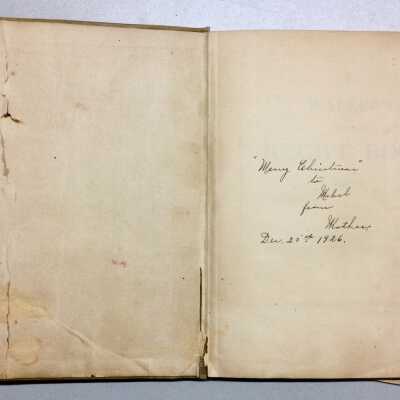 "Merry Christmas"
to
Mabel
from
Mother
Dec. 25th 1926.